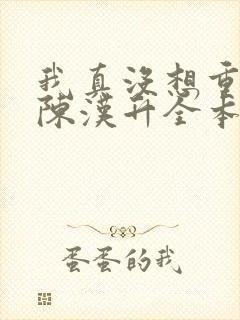 我真没想重
陈汉升全本
蛋蛋的我